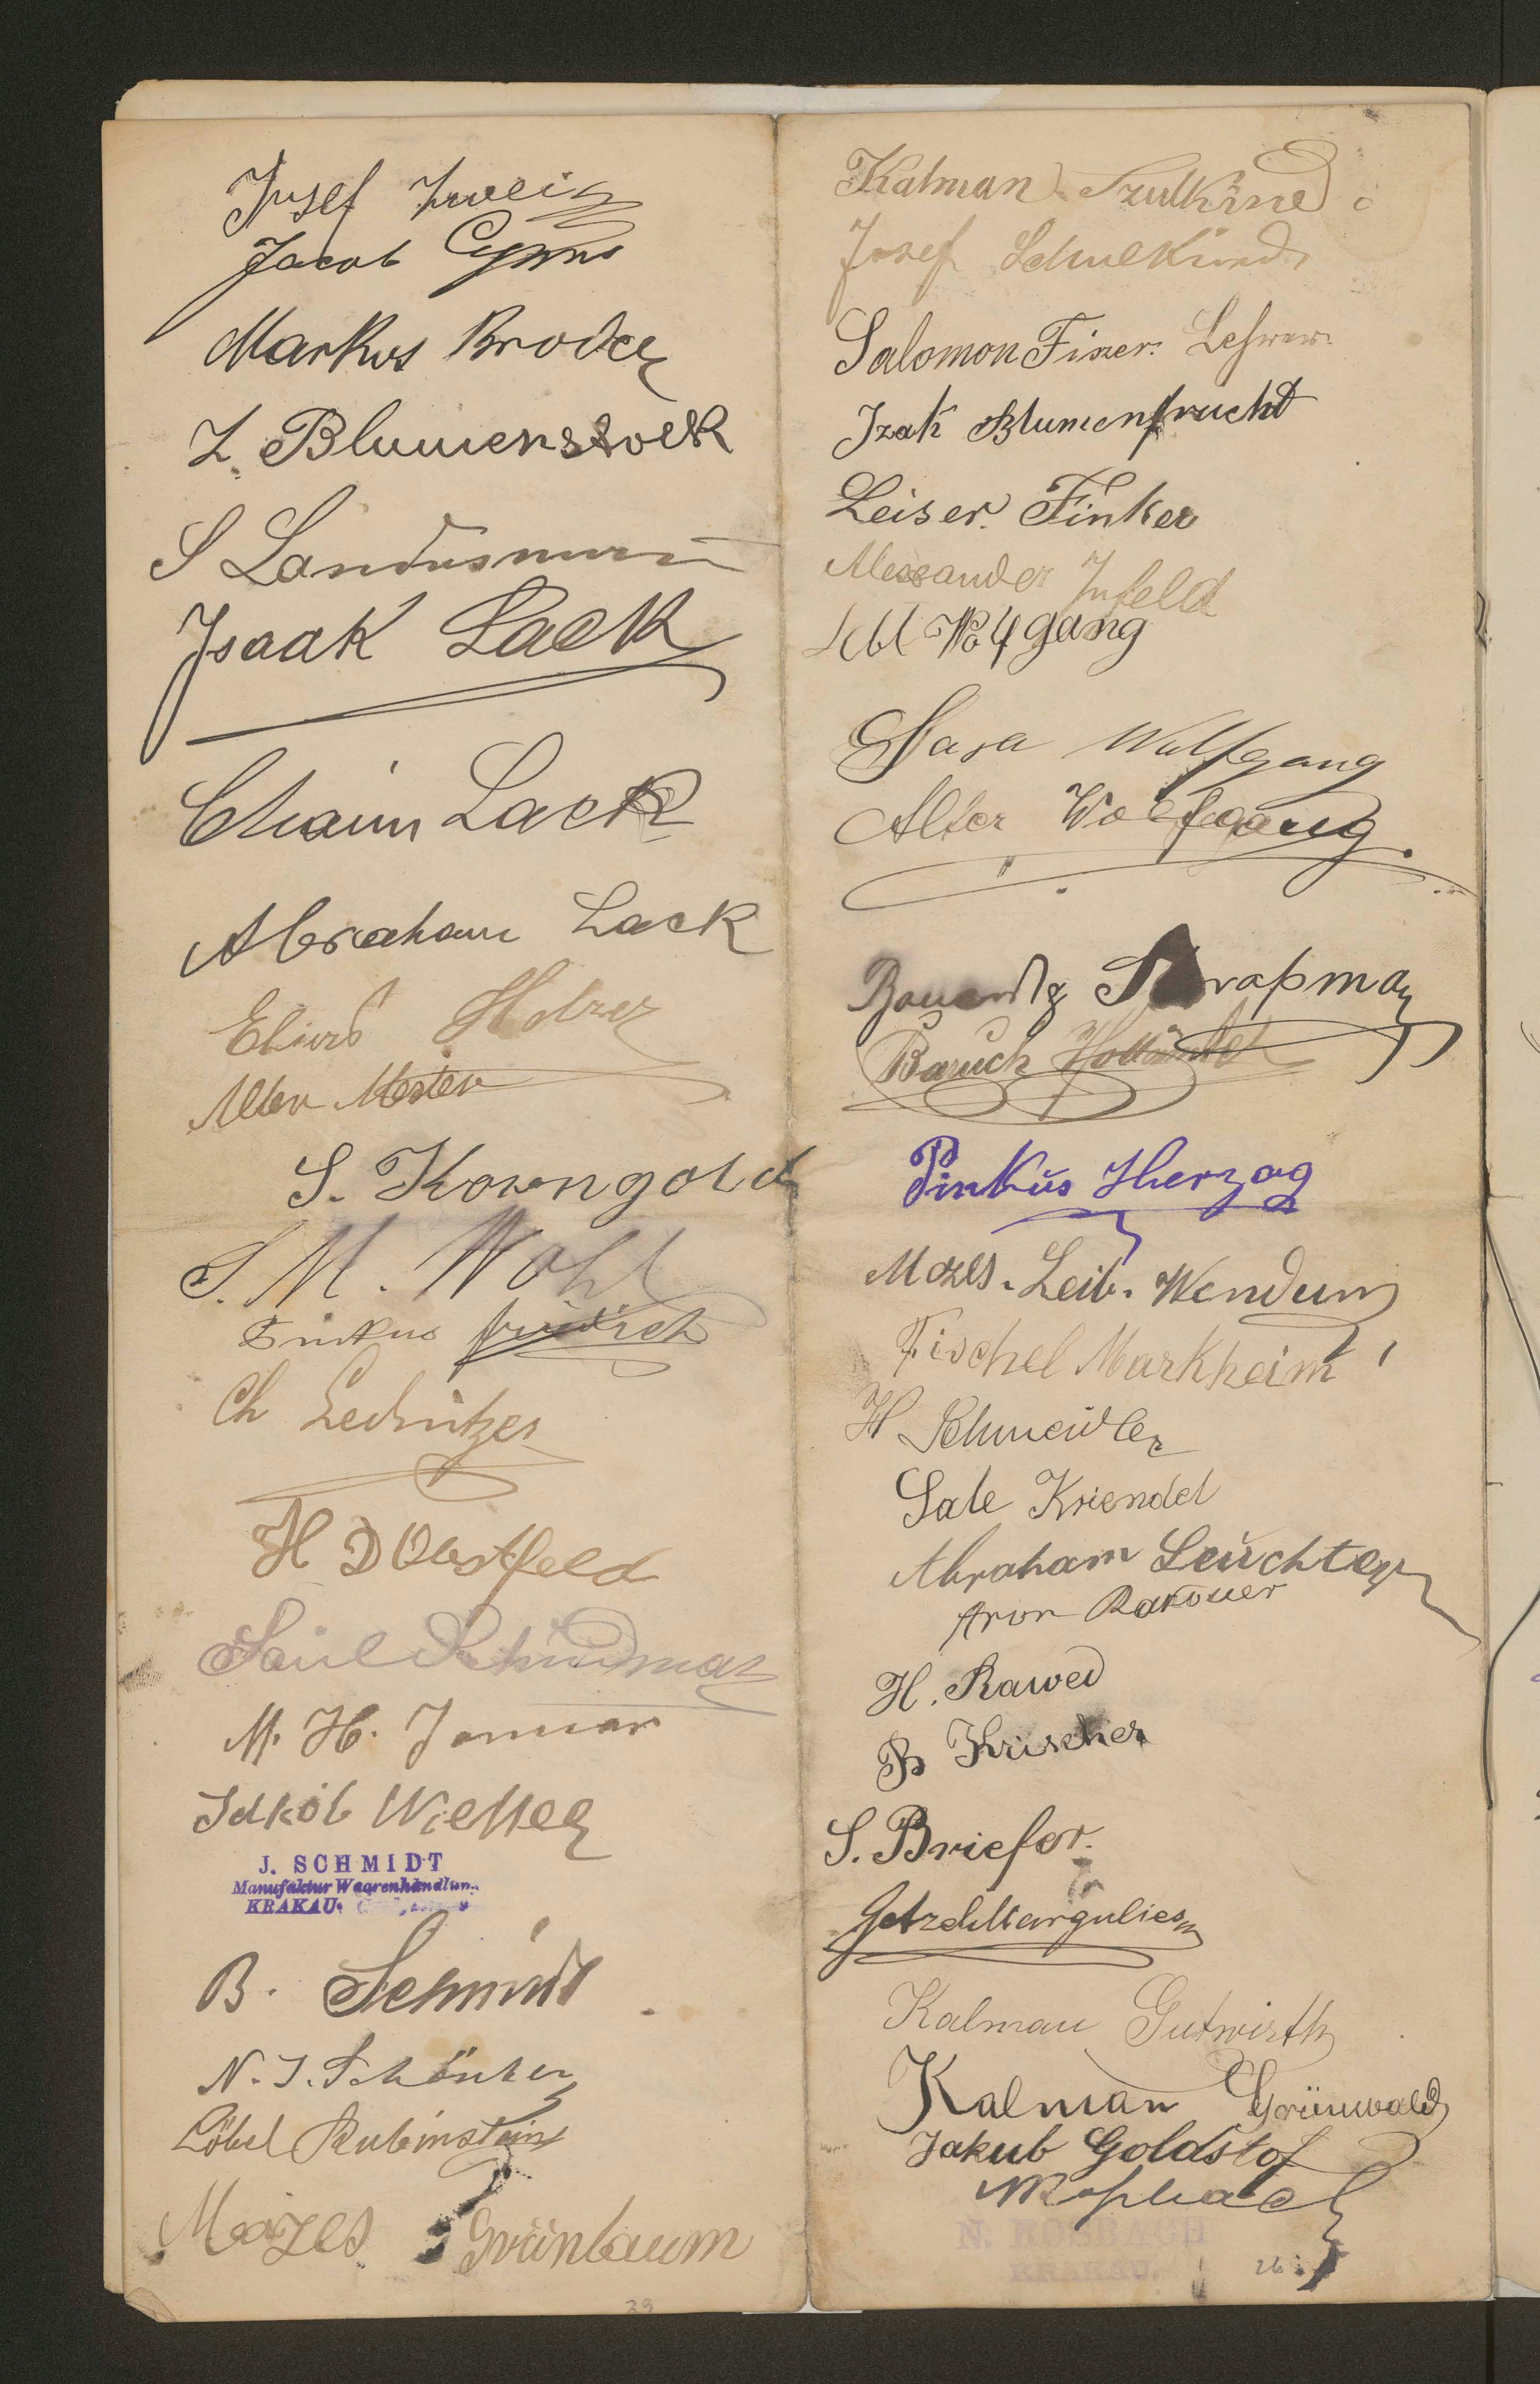 Josef Zweig
Jacob Cyprus
Markus Broder
L. Blumenstock
S Landusmann
Isaak Lack
Chaim Lack
Abraham Lack
Alter Mester
S. Korngold
S. M. Wohl
Pinkus
Ch Lednitzer
H D Obstfeld
Saul Schudmak
M. H. Januar
Jakob Wiener
J. SCHMIDT
Manufaktur Waarenhandlung
KRAKAU
B. Schmidt
N. J. Schönker
Löbel Rubinstein
Mojzes Grünbaum
39
Kalman Szulkind
Josef Schulkind
Salomon Finzer. Lehrer.
Izak Blumenfrucht
Leiser. Finker
Alexander Infeld
Wolfgang
Sara Wolfgang
Alter Wolfgang.
Baruch Holländer
Pinkus Herzog
Mozes. Leib. Wendum
Fischel Markheim
H Schneidler
Sale Kriendel
Abraham Leuchter
Aron Rakower
H. Rawed
B Krischer
S. Briefer.
Getzel Margulies
Kalman Gutwirth
Kalman Grünwald
Jakub Goldstof
N. ROSBACH
KRAKAU.
26